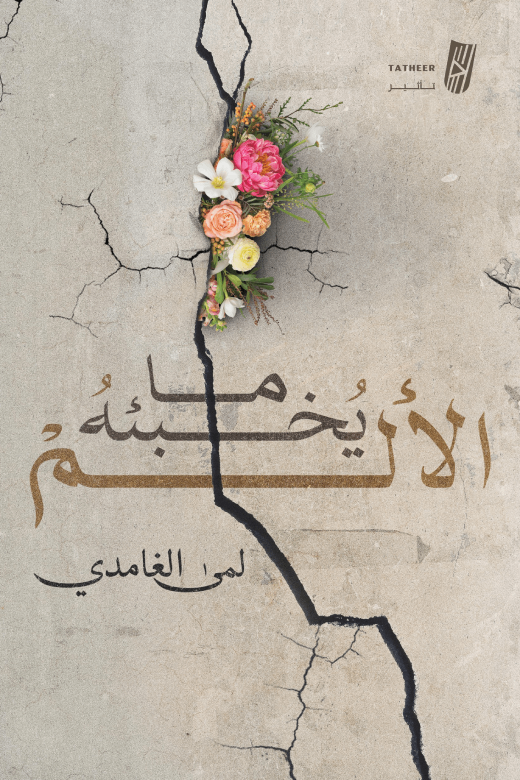 TATHEER
تأثير
ما
يُخبئهُ
الألمْ
لمى الغامدي